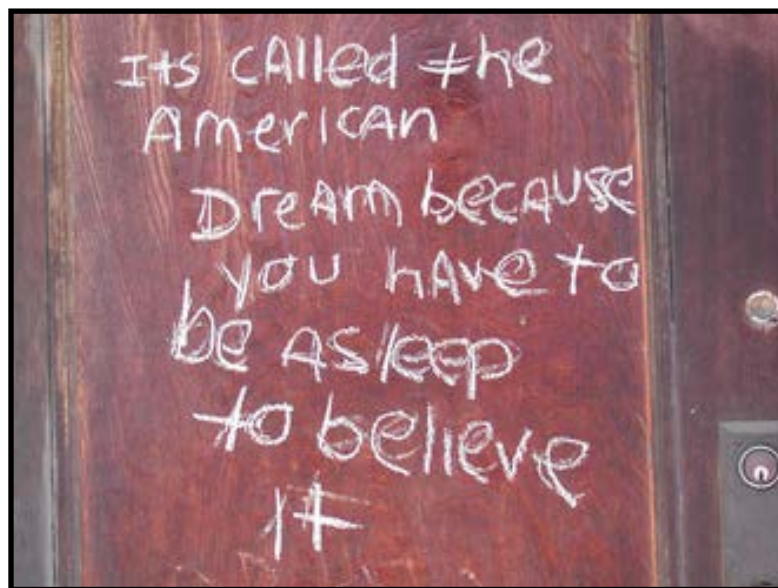 Its cAlled the
AmericAn
DreAm becAUSe
you hAve to
be ASleep
to believe
it